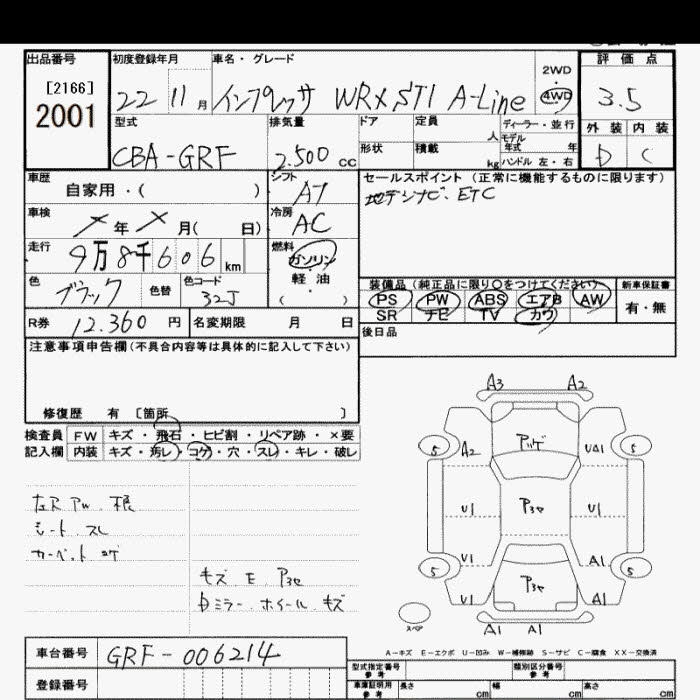 出品番号 初度登録年月 車名・グレード 評価点
[2166]
2001 22 11月 インプレッサ WRX STI A-Line 2WD・4WD 3.5
型式 排気量 ドア 定員 人 ディーラー・並行 外装 内装
CBA-GRF 2.500cc 形状 積載 kg モデル年式 年 ハンドル 左・右 D C
車歴 自家用・( ) シフト A7 セールスポイント(正常に機能するものに限ります)
地デジナビ. ETC
車検 メ年メ月( 日) 冷房 AC
走行 9万8千606km 燃料 ガソリン・軽油・( )
色 ブラック 色替 色コード 32J 装備品(純正品に限り○をつけてください) 新車保証書
PS PW ABS エアB AW 有・無
SR ナビ TV カワ
R券 12.360円 名変期限 月 日 後日品
注意事項申告欄(不具合内容等は具体的に記入して下さい)
修復歴 有 〔箇所 〕
検査員 FW キズ・飛石・ヒビ割・リペア跡・×要
記入欄 内装 キズ・汚レ・コゲ・穴・スレ・キレ・破レ
A3 A2
5 A2 UA1 5
U1 P3セ U1
U1 A1
5 5
P3セ
U1 A1
スペア
A1 A1
シート. スレ
カーペット コゲ
キズ E P3セ
Dミラー. ホイール. キズ
A-キズ E-エクボ U-凹み W-補修跡 S-サビ C-腐食 XX-交換済
車台番号 GRF-006214
型式指定番号 参考 類別区分番号 参考
登録番号 車庫証明用 参考 長さ cm 幅 cm 高さ cm